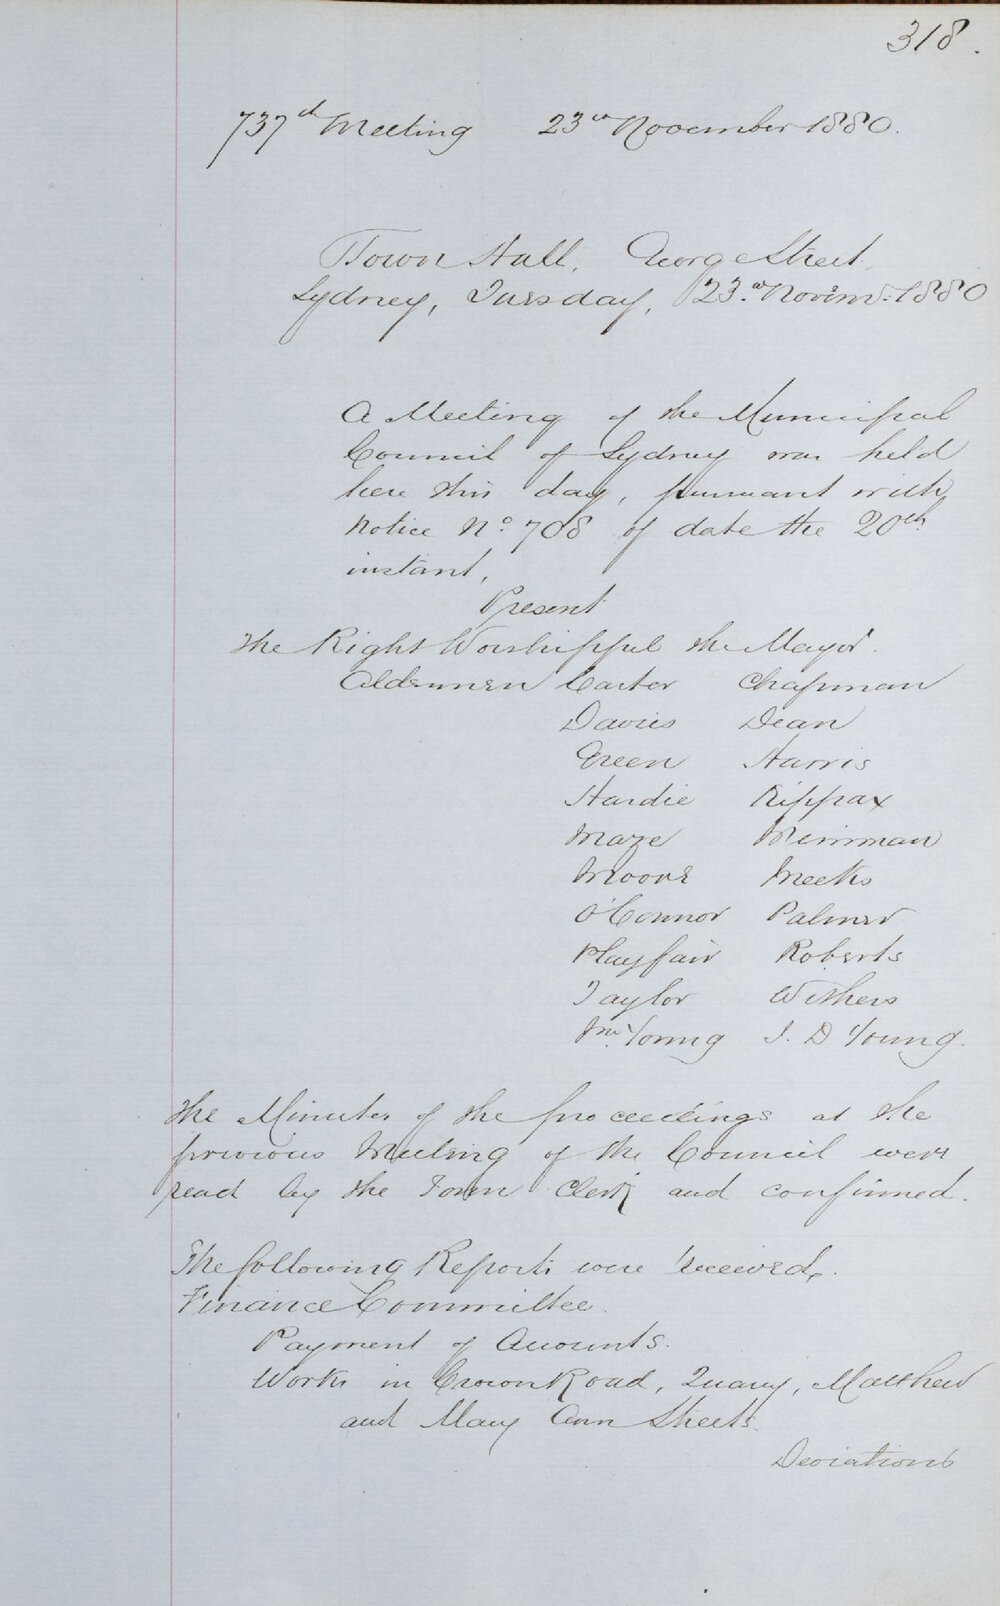 318.
737th Meeting 23rd November 1880.
Town Hall, George Street,
Sydney, Tuesday, 23rd Novem. 1880
A Meeting of the Municipal
Council of Sydney was held
here this day, pursuant with
notice No. 708 of date the 20th
instant,
Present
The Right Worshipful the Mayor.
Aldermen Carter Chapman
Davies Dean
Green Harris
Hardie Kippax
Maze Merriman
Moore Meeks
O'Connor Palmer
Playfair Roberts
Taylor Withers
Wm. Young J. D Young.
The Minutes of the proceedings at the
previous Meeting of the Council were
read by the Town Clerk and confirmed.
The following Reports were received,
Finance Committee.
Payment of Accounts.
Works in Crown Road, Quarry, Matthew
and Mary Ann Streets.
Deviations